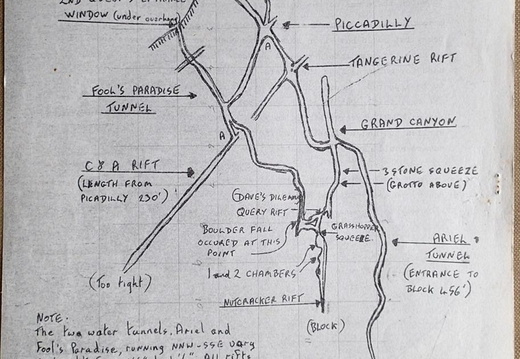 2ND QUEST'S ENTRANCE
WINDOW (under overhang)
PICCADILLY
TANGERINE RIFT
FOOL'S PARADISE
TUNNEL
A
A
GRAND CANYON
C & A RIFT
(LENGTH FROM
PICADILLY 230')
3 STONE SQUEEZE
(GROTTO ABOVE)
DAVE'S DILEMMA
QUERY RIFT
BOULDER FALL
OCCURED AT THIS
POINT
GRASSHOPPER
SQUEEZE
ARIEL
TUNNEL
(ENTRANCE TO
BLOCK 456')
1 and 2 CHAMBERS
(Too tight)
NUTCRACKER RIFT
(BLOCK)
NOTE.
The two water tunnels, Ariel and
Fool's Paradise, running NNW-SSE vary
All rifts